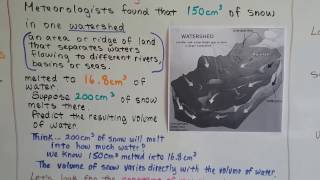 Meteorologists found that 150cm³ of snow
in one watershed
an area or ridge of land
that separates waters
flowing to different rivers,
basins or seas.
melted to 16.8cm³
Suppose 200cm³ of snow
melts there.
Predict the resulting volume
of water.
Think... 200cm³ of snow will melt
into how much water?
We know 150cm³ melted into 16.8cm³
The volume of snow varies directly with the volume of water.
Let's look for the
WATERSHED